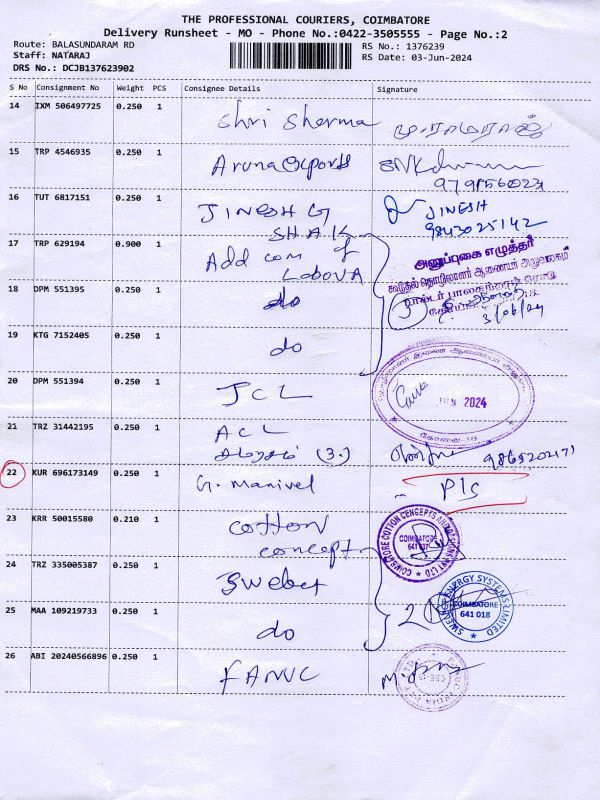 THE PROFESSIONAL COURIERS, COIMBATORE
Delivery Runsheet - MO - Phone No.:0422-3505555 - Page No.:2
Route: BALASUNDARAM RD RS No.: 1376239
Staff: NATARAJ RS Date: 03-Jun-2024
DRS No.: DCJB137623902
S No Consignment No Weight PCS Consignee Details Signature
14 IXM 506497725 0.250 1 Shri Sharma
15 TRP 4546935 0.250 1 Aruna Exports
16 TUT 6817151 0.250 1 JINESH G JINESH
SHAH 9843025142
17 TRP 629194 0.900 1 Add com of அனுப்புகை எழுத்தர்
Labour கூடுதல் தொழிலாளர் ஆணையர் அலுவலகம்
18 DPM 551395 0.250 1 do 3/06/24
19 KTG 7152405 0.250 1 do
20 DPM 551394 0.250 1 JCL 2024
21 TRZ 31442195 0.250 1 ACL
(3.)
22 KUR 696173149 0.250 1 G. Manivel P/S
23 KRR 50015580 0.210 1 cotton
concept COIMBATORE 641
24 TRZ 335005387 0.250 1 Sweber
25 MAA 109219733 0.250 1 do 2 ENERGY SYSTEMS LIMITED COIMBATORE 641 018
26 ABI 20240566896 0.250 1 FANUC